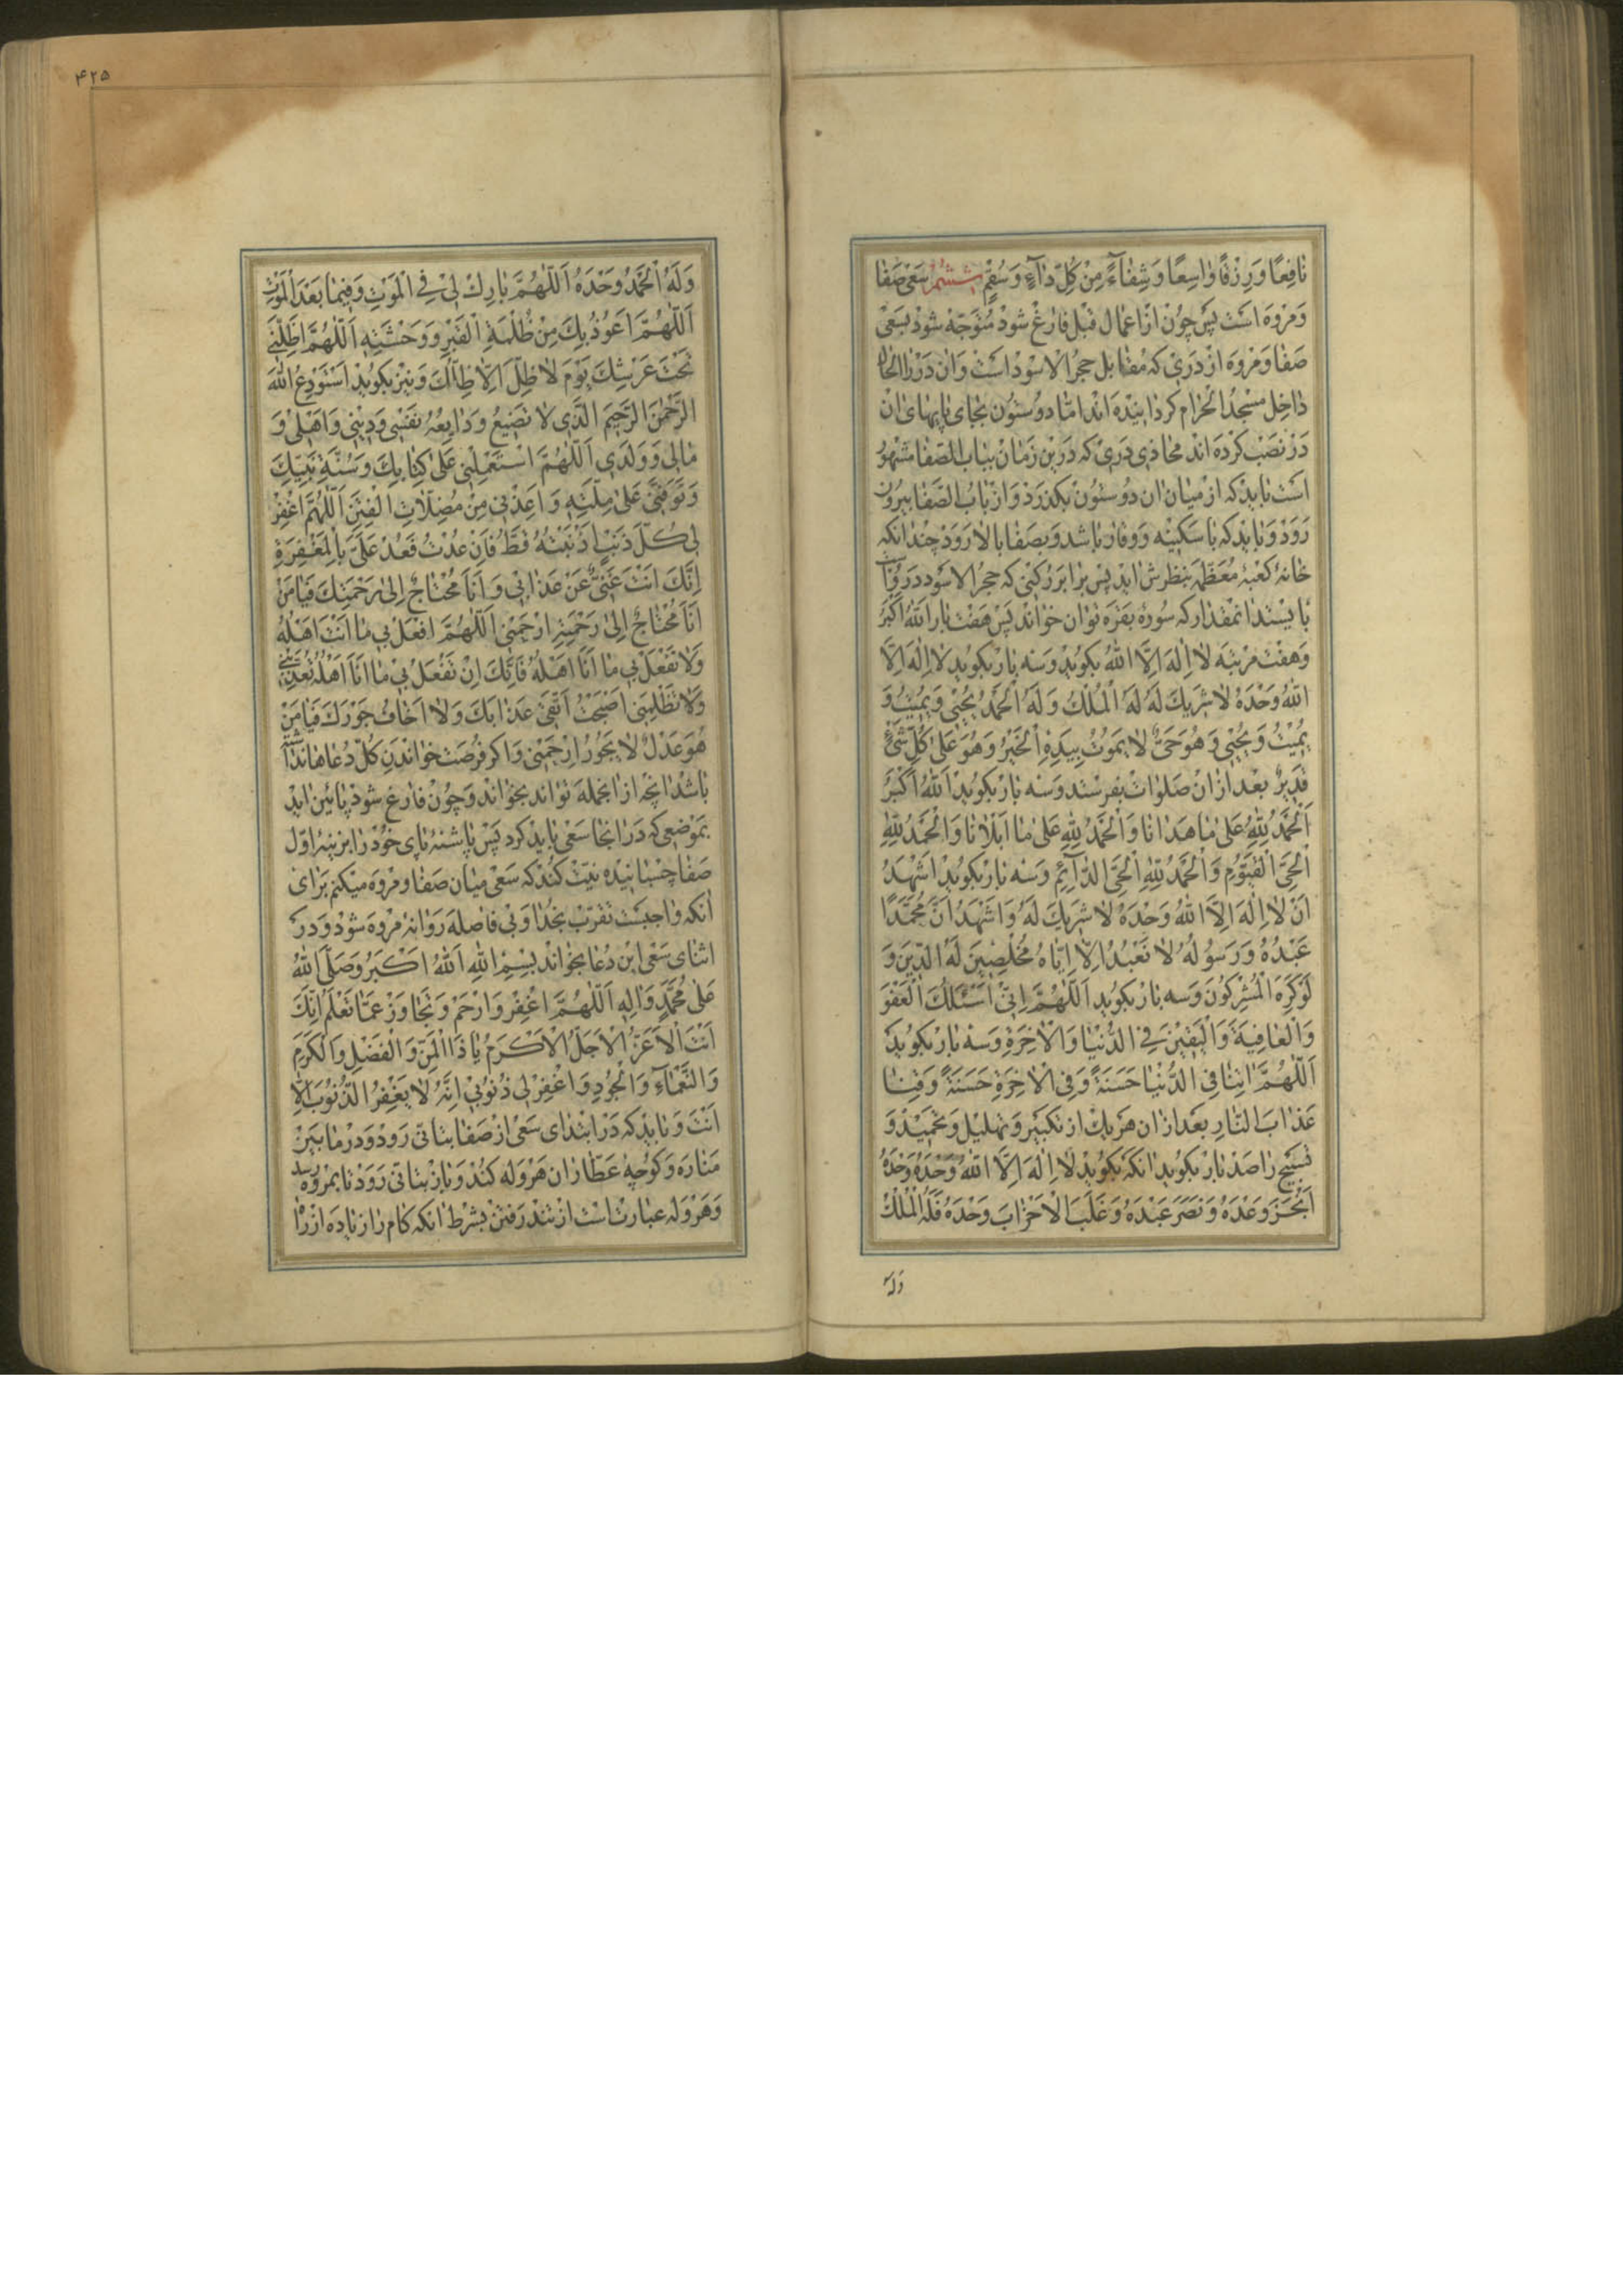 نافِعًا وَرِزْقًا وٰاسِعًا وَشِفٰآءً مِنْ كُلِّ دٰآءٍ وَسُقْمٍ ششم سعی صفا
و مروه است پس چون از اعمال قبل فارغ شود متوجّه شود بسعی
صفا و مروه از دری که مقابل حجر الاسود است و آن در را الحال
داخل مسجد الحرام کردانیده اند امّا دو ستون بجای پایهای آن
در نصب کرده اند محاذی دری که درین زمان بباب الصّفا مشهور
است باید که از میان ان دو ستون بکذرد و از باب الصّفا بیرون
رود و باید که با سکینه و وقار باشد و بصفا بالا رود چندانکه
خانهٔ کعبهٔ معظّمه بنظرش اید پس برابر رکنی که حجر الاسود در وست
بایستد انمقدار که سورهٔ بقره توان خواند پس هفت بار اَللهُ اَكْبَرُ
و هفت مرتبه لٰا اِلٰهَ اِلَّا اللهُ بکوید و سه بار بکوید لٰا اِلٰهَ اِلَّا
اللهُ وَحْدَهُ لٰا شَرِيكَ لَهُ لَهُ الْمُلْكُ وَلَهُ الْحَمْدُ يُحْيِي وَيُمِيتُ وَ
يُمِيْتُ وَيُحْيِي وَهُوَ حَيٌّ لٰا يَمُوتُ بِيَدِهِ الْخَيْرُ وَهُوَ عَلىٰ كُلِّ شَيْءٍ
قَدِيرٌ بعد ازان صلوات بفرستد و سه بار بکوید اَللهُ اَكْبَرُ
اَلْحَمْدُ لِلّٰهِ عَلىٰ مٰا هَدٰانٰا وَالْحَمْدُ لِلّٰهِ عَلىٰ مٰا اَبْلٰانٰا وَالْحَمْدُ لِلّٰهِ
الْحَيِّ الْقَيُّومِ وَالْحَمْدُ لِلّٰهِ الْحَيِّ الدّٰآئِمِ و سه بار بکوید اَشْهَدُ
اَنْ لٰا اِلٰهَ اِلَّا اللهُ وَحْدَهُ لٰا شَرِيكَ لَهُ وَاَشْهَدُ اَنَّ مُحَمَّدًا
عَبْدُهُ وَرَسُولُهُ لٰا نَعْبُدُ اِلّٰا اِيّٰاهُ مُخْلِصِينَ لَهُ الدِّينَ وَ
لَوْ كَرِهَ الْمُشْرِكُونَ و سه بار بکوید اَللّٰهُمَّ اِنِّي اَسْئَلُكَ الْعَفْوَ
وَالْعٰافِيَةَ وَالْيَقِيْنَ فِي الدُّنْيٰا وَالْاٰخِرَةِ و سه بار بکوید
اَللّٰهُمَّ اٰتِنٰا فِي الدُّنْيٰا حَسَنَةً وَفِي الْاٰخِرَةِ حَسَنَةً وَقِنٰا
عَذٰابَ النّٰارِ بعد ازان هر یك از تکبیر و تهلیل و تحمید و
تسبیح را صد بار بکوید انکه بکوید لٰا اِلٰهَ اِلَّا اللهُ وَحْدَهُ وَحْدَهُ
اَنْجَزَ وَعْدَهُ وَنَصَرَ عَبْدَهُ وَغَلَبَ الْاَحْزٰابَ وَحْدَهُ فَلَهُ الْمُلْكُ
وَلَهُ
۴۲۵
وَلَهُ الْحَمْدُ وَحْدَهُ اَللّٰهُمَّ بٰارِكْ لِيْ فِي الْمَوْتِ وَفِيمٰا بَعْدَ الْمَوْتِ
اَللّٰهُمَّ اَعُوْذُ بِكَ مِنْ ظُلْمَةِ الْقَبْرِ وَوَحْشَتِهِ اَللّٰهُمَّ اَظِلَّنِي
تَحْتَ عَرْشِكَ يَوْمَ لٰا ظِلَّ اِلّٰا ظِلُّكَ و نیز بکوید اَسْتَوْدِعُ اللهَ
الرَّحْمٰنَ الرَّحِيمَ الَّذِي لٰا تَضِيعُ وَدٰايِعُهُ نَفْسِي وَدِيْنِي وَاَهْلِي وَ
مٰالِي وَوَلَدِي اَللّٰهُمَّ اسْتَعْمِلْنِي عَلىٰ كِتٰابِكَ وَسُنَّةِ نَبِيِّكَ
وَتَوَفَّنِي عَلىٰ مِلَّتِهِ وَاَعِذْنِي مِنْ مُضِلّٰاتِ الْفِتَنِ اَللّٰهُمَّ اغْفِرْ
لِي كُلَّ ذَنْبٍ اَذْنَبْتُهُ قَطُّ فَاِنْ عُدْتُ فَعُدْ عَلَيَّ بِالْمَغْفِرَةِ
اِنَّكَ اَنْتَ غَنِيٌّ عَنْ عَذٰابِي وَاَنَا مُحْتٰاجٌ اِلىٰ رَحْمَتِكَ فَيٰا مَنْ
اَنَا مُحْتٰاجٌ اِلىٰ رَحْمَتِهِ ارْحَمْنِي اَللّٰهُمَّ افْعَلْ بِي مٰا اَنْتَ اَهْلُهُ
وَلٰا تَفْعَلْ بِي مٰا اَنَا اَهْلُهُ فَاِنَّكَ اِنْ تَفْعَلْ بِيْ مٰا اَنَا اَهْلُهُ تُعَذِّبْنِي
وَلٰا تَظْلِمْنِي اَصْبَحْتُ اَتَّقِي عَذٰابَكَ وَلٰا اَخٰافُ جَوْرَكَ فَيٰا مَنْ
هُوَ عَدْلٌ لٰا يَجُورُ ارْحَمْنِي و اکر فرصت خواندن کلّ دعاها نداشته
باشد انچه از انجمله تواند بخواند و چون فارغ شود پائین اید
بموضعی که در انجا سعی باید کرد پس پاشنهٔ پای خود را بر پلهٔ اوّل
صفا چسبانیده نیّت کند که سعی میان صفا و مروه میکنم برای
انکه واجبست تقرّب بخدا و بی فاصله روانهٔ مروه شود و در
اثنای سعی این دعا بخواند بِسْمِ اللهِ اَللهُ اَكْبَرُ وَصَلَّى اللهُ
عَلىٰ مُحَمَّدٍ وَاٰلِهِ اَللّٰهُمَّ اغْفِرْ وَارْحَمْ وَتَجٰاوَزْ عَمّٰا تَعْلَمُ اِنَّكَ
اَنْتَ الْاَعَزُّ الْاَجَلُّ الْاَكْرَمُ يٰا ذَا الْمَنِّ وَالْفَضْلِ وَالْكَرَمِ
وَالنَّعْمٰآءِ وَالْجُودِ وَاغْفِرْ لِي ذُنُوبِي اِنَّهُ لٰا يَغْفِرُ الذُّنُوبَ اِلّٰا
اَنْتَ و باید که در ابتدای سعی از صفا بتانّی رود و در ما بین
مناره و کوچهٔ عطّاران هروله کند و باز بتانّی رود تا بمروه رسد
و هروله عبارتست از تند رفتن بشرط انکه کام را زیاده از راه